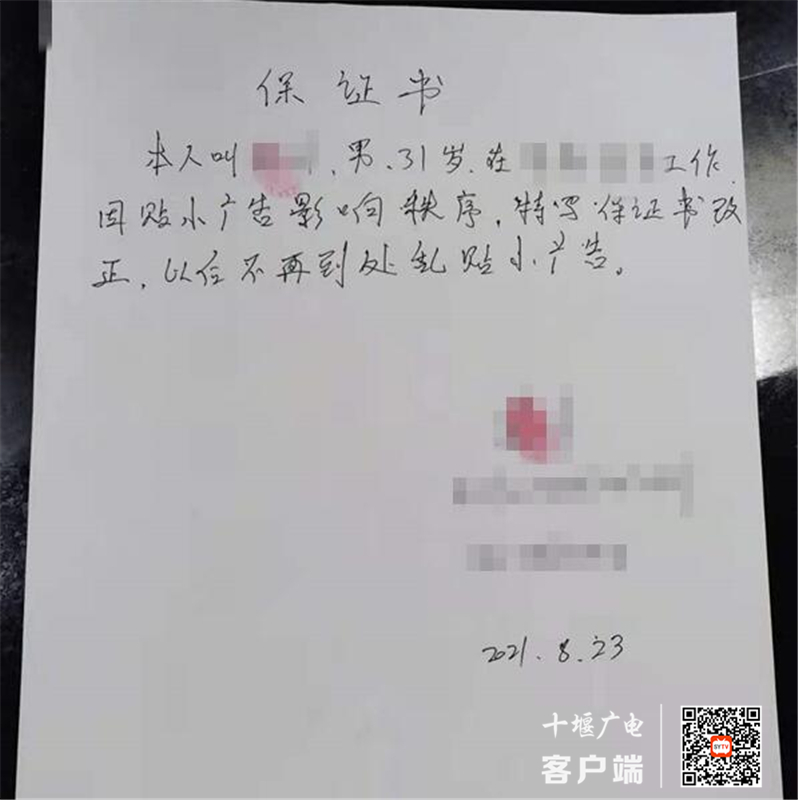 保证书
本人叫 、男、31岁、在 工作
因贴小广告影响秩序,特写保证书改
正,以后不再到处乱贴小广告。
2021.8.23
十堰广电
客户端
SYTV